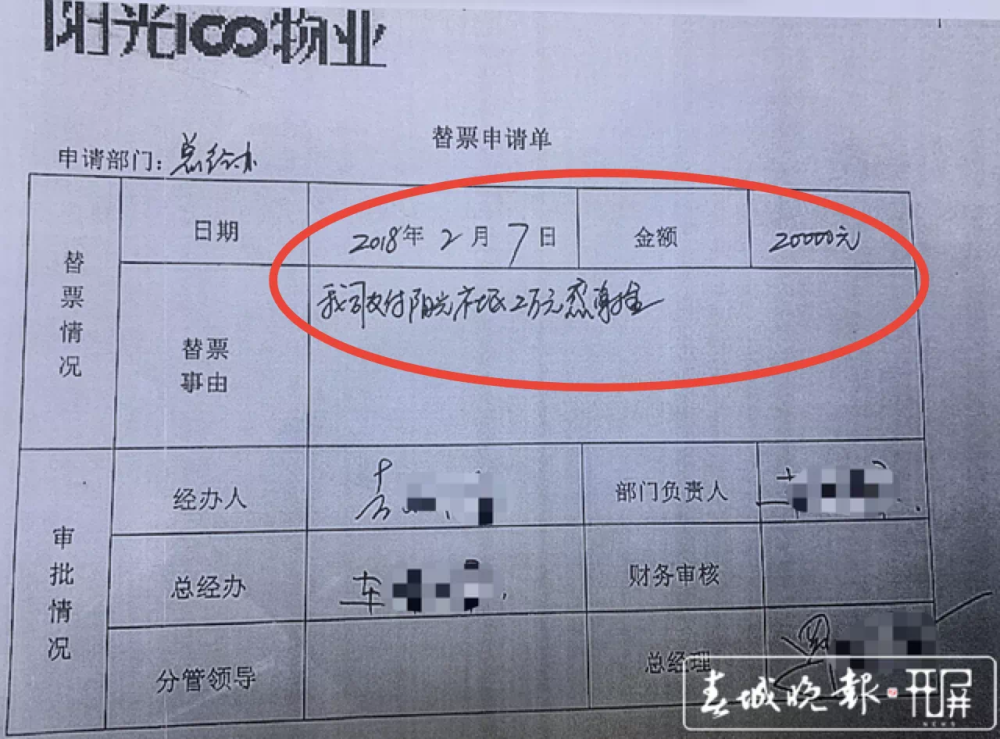 阳光100物业
替票申请单
申请部门：总经办
替票情况
日期 2018年2月7日 金额 20000元
替票事由
我司支付阳光市坻2万元
审批情况
经办人 部门负责人
总经办 车 财务审核
分管领导 总经理
春城晚報 开屏
NEWS